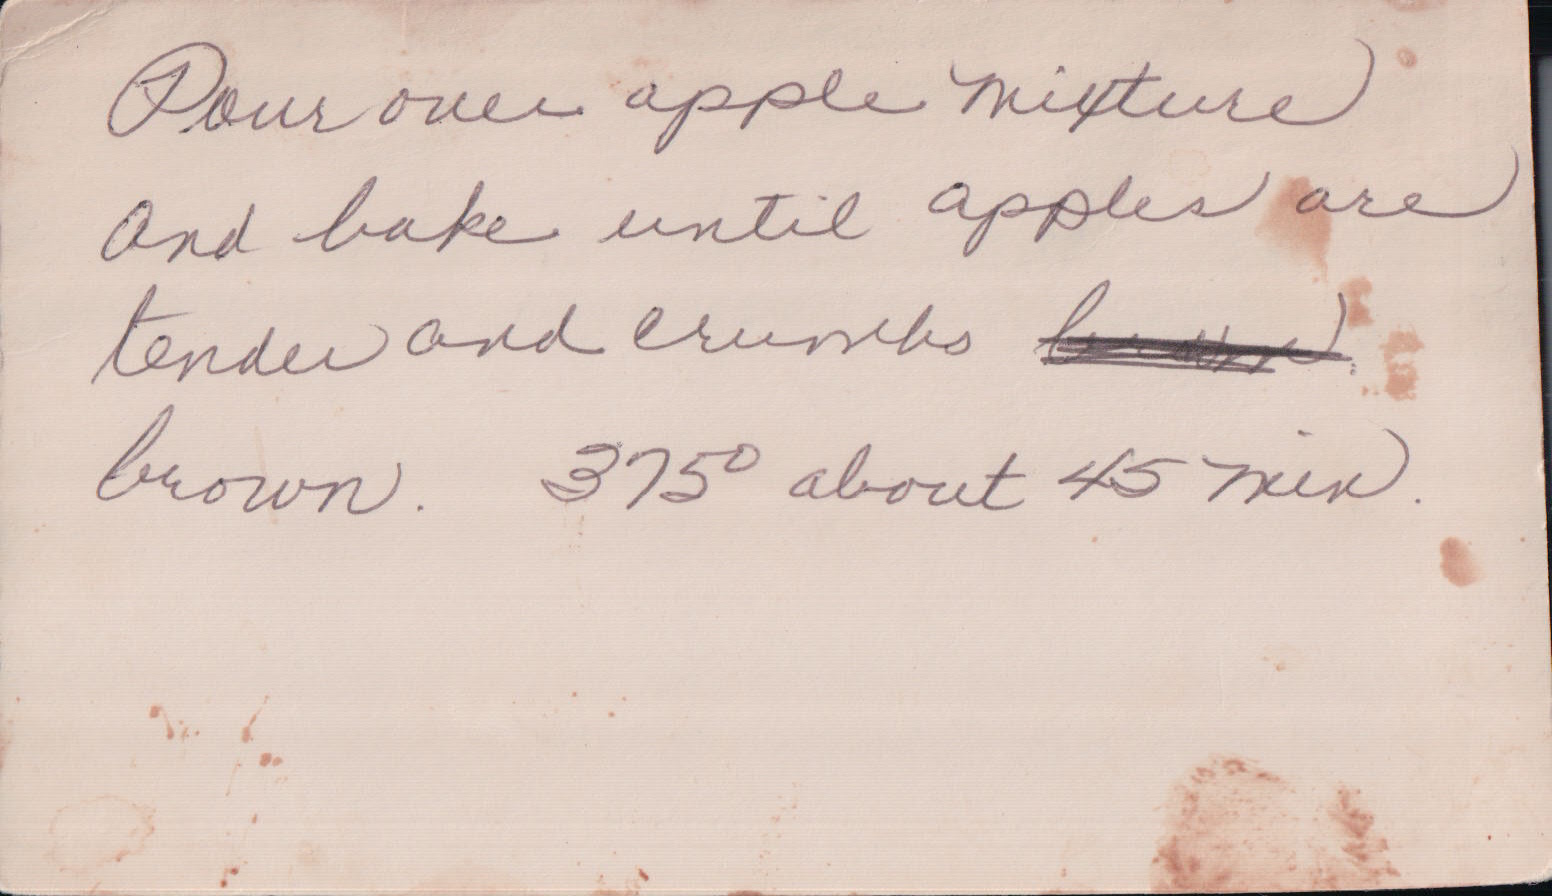 Pour over apple mixture
and bake until apples are
tender and crumbs
brown. 375° about 45 min.